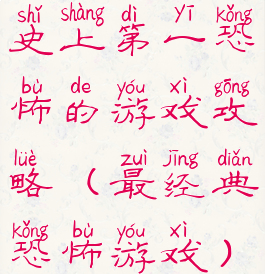 shǐ shàng dì yī kǒng
史上第一恐
bù de yóu xì gōng
怖的游戏攻
lüè zuì jīng diǎn
略（最经典
kǒng bù yóu xì
恐怖游戏）